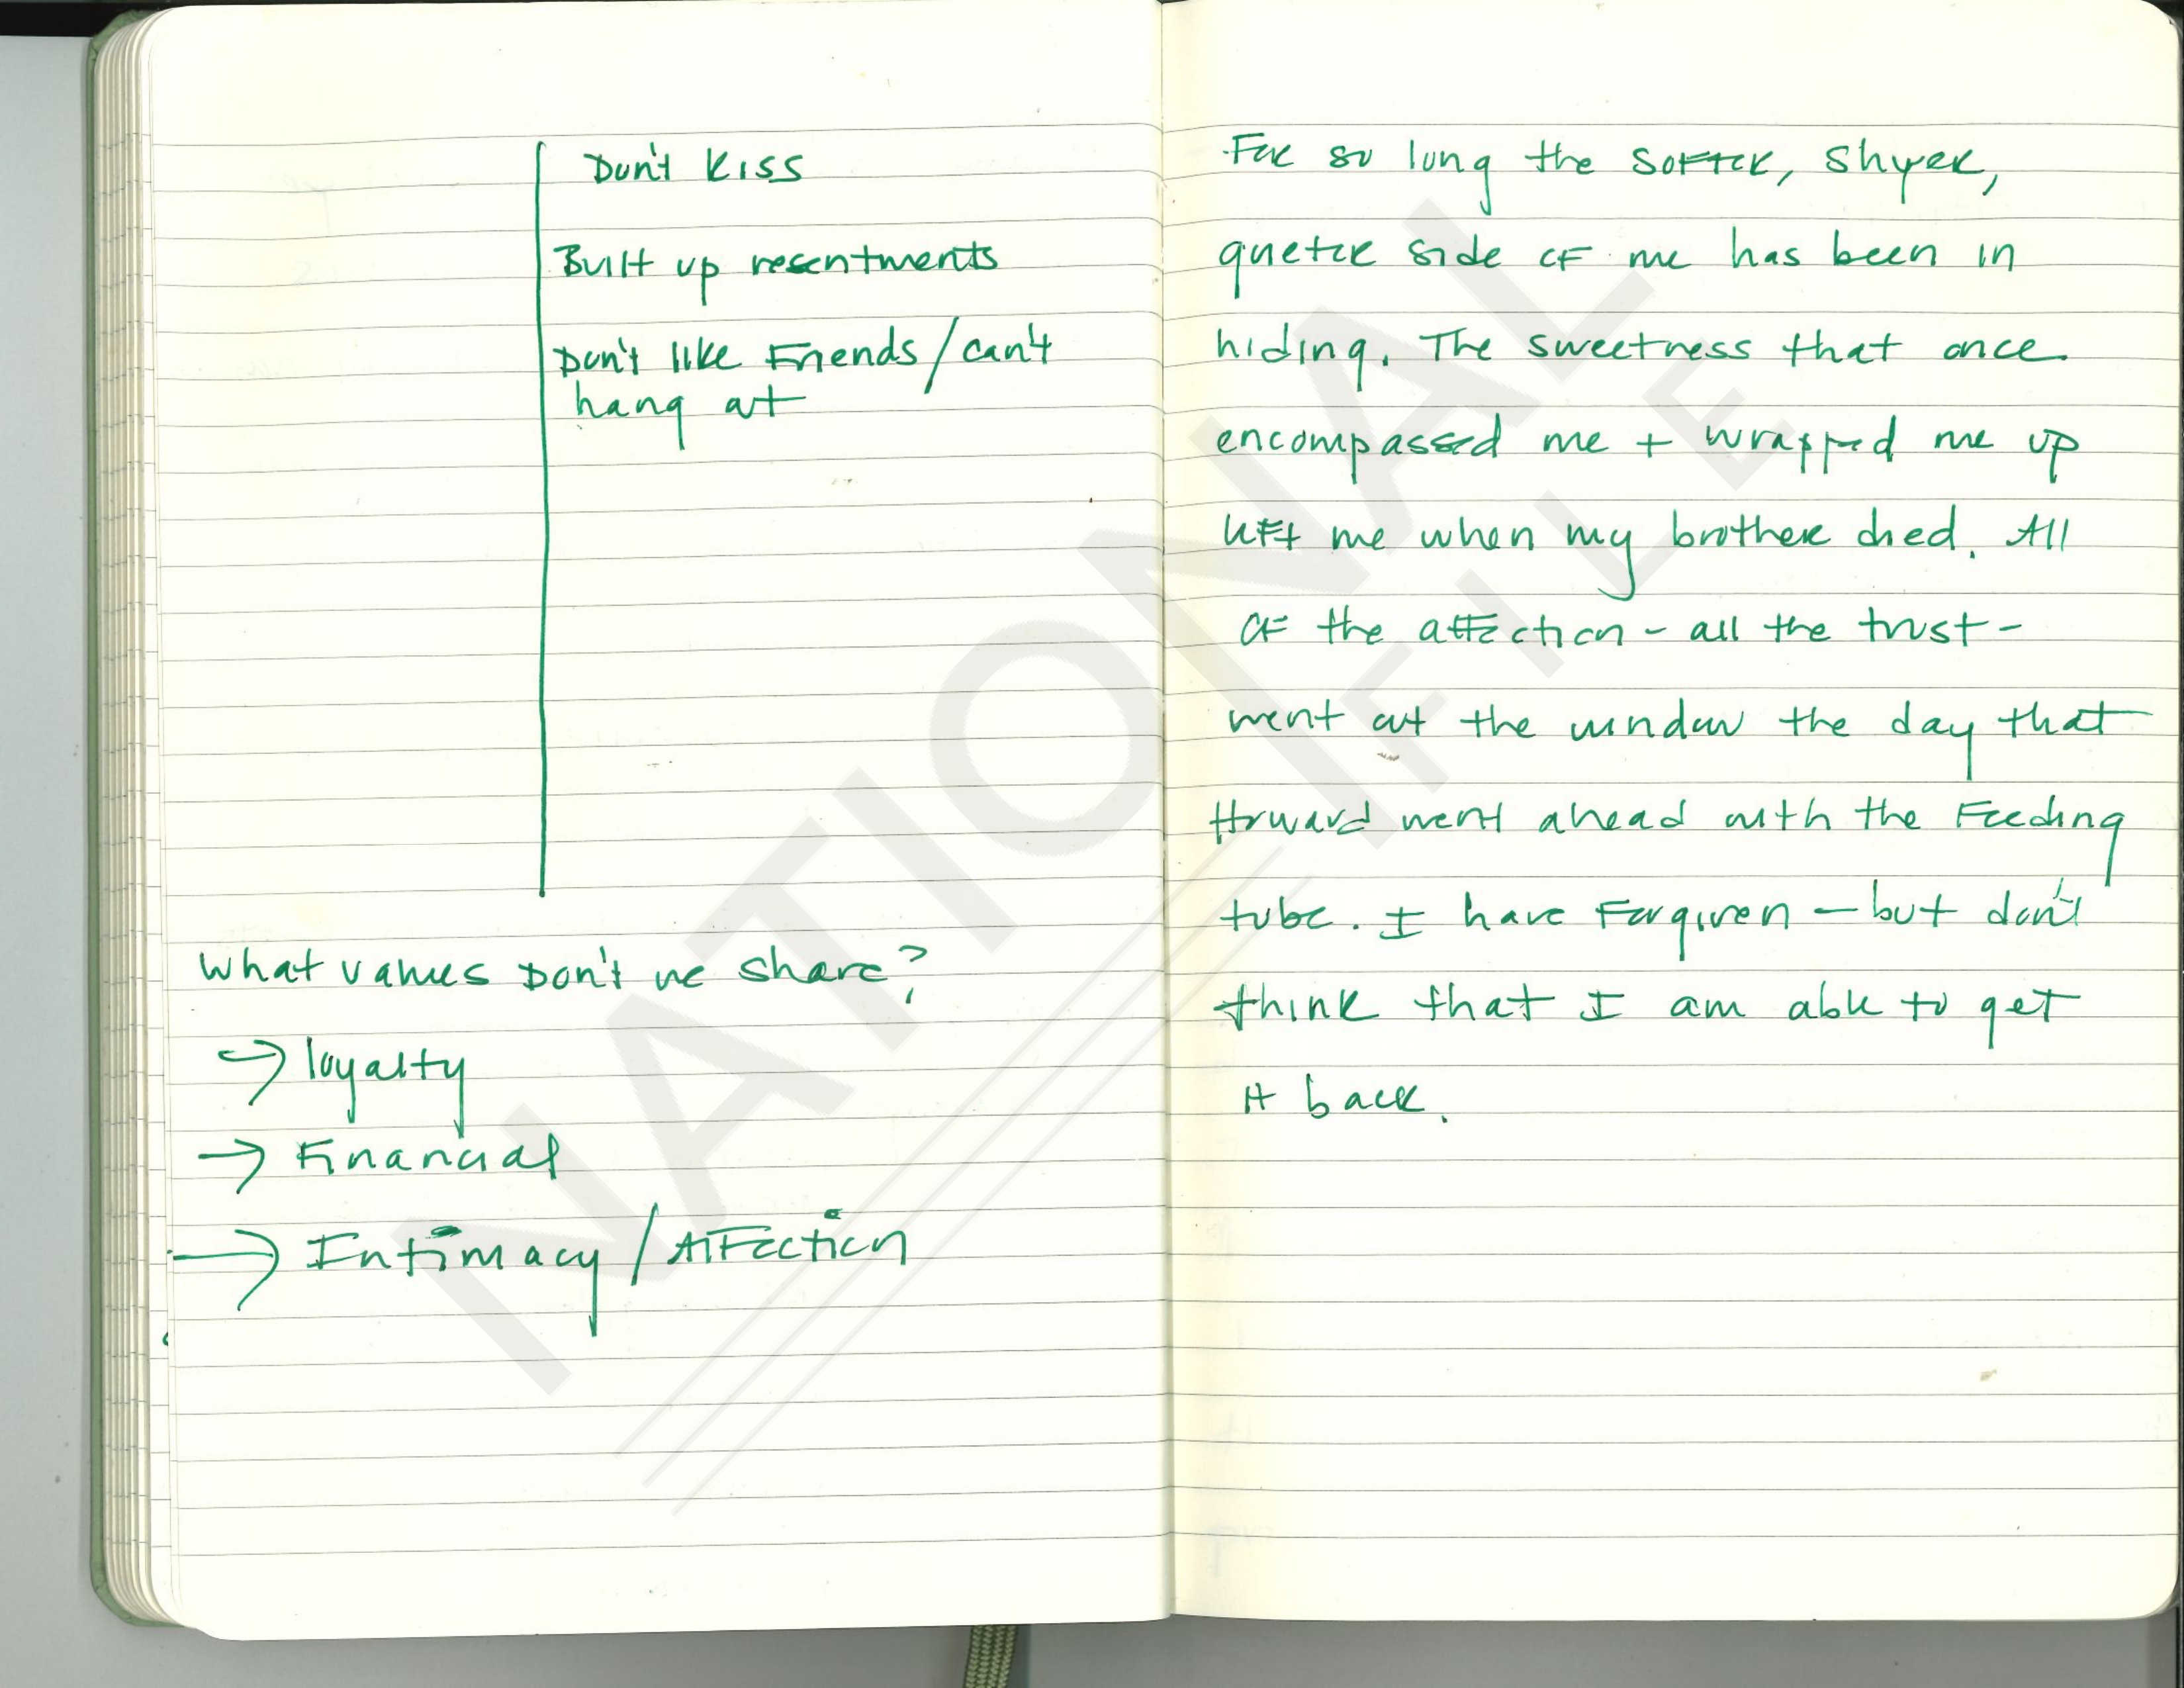 Don't Kiss
Built up resentments
Don't like Friends / can't
hang out
What values Don't we share?
→ loyalty
→ Financial
→ Intimacy / Affection
For so long the softer, shyer,
quieter side of me has been in
hiding. The sweetness that once
encompassed me + wrapped me up
left me when my brother died. All
of the affection - all the trust -
went out the window the day that
Howard went ahead with the Feeding
tube. I have Forgiven - but don't
think that I am able to get
it back.
NATIONAL
FILE